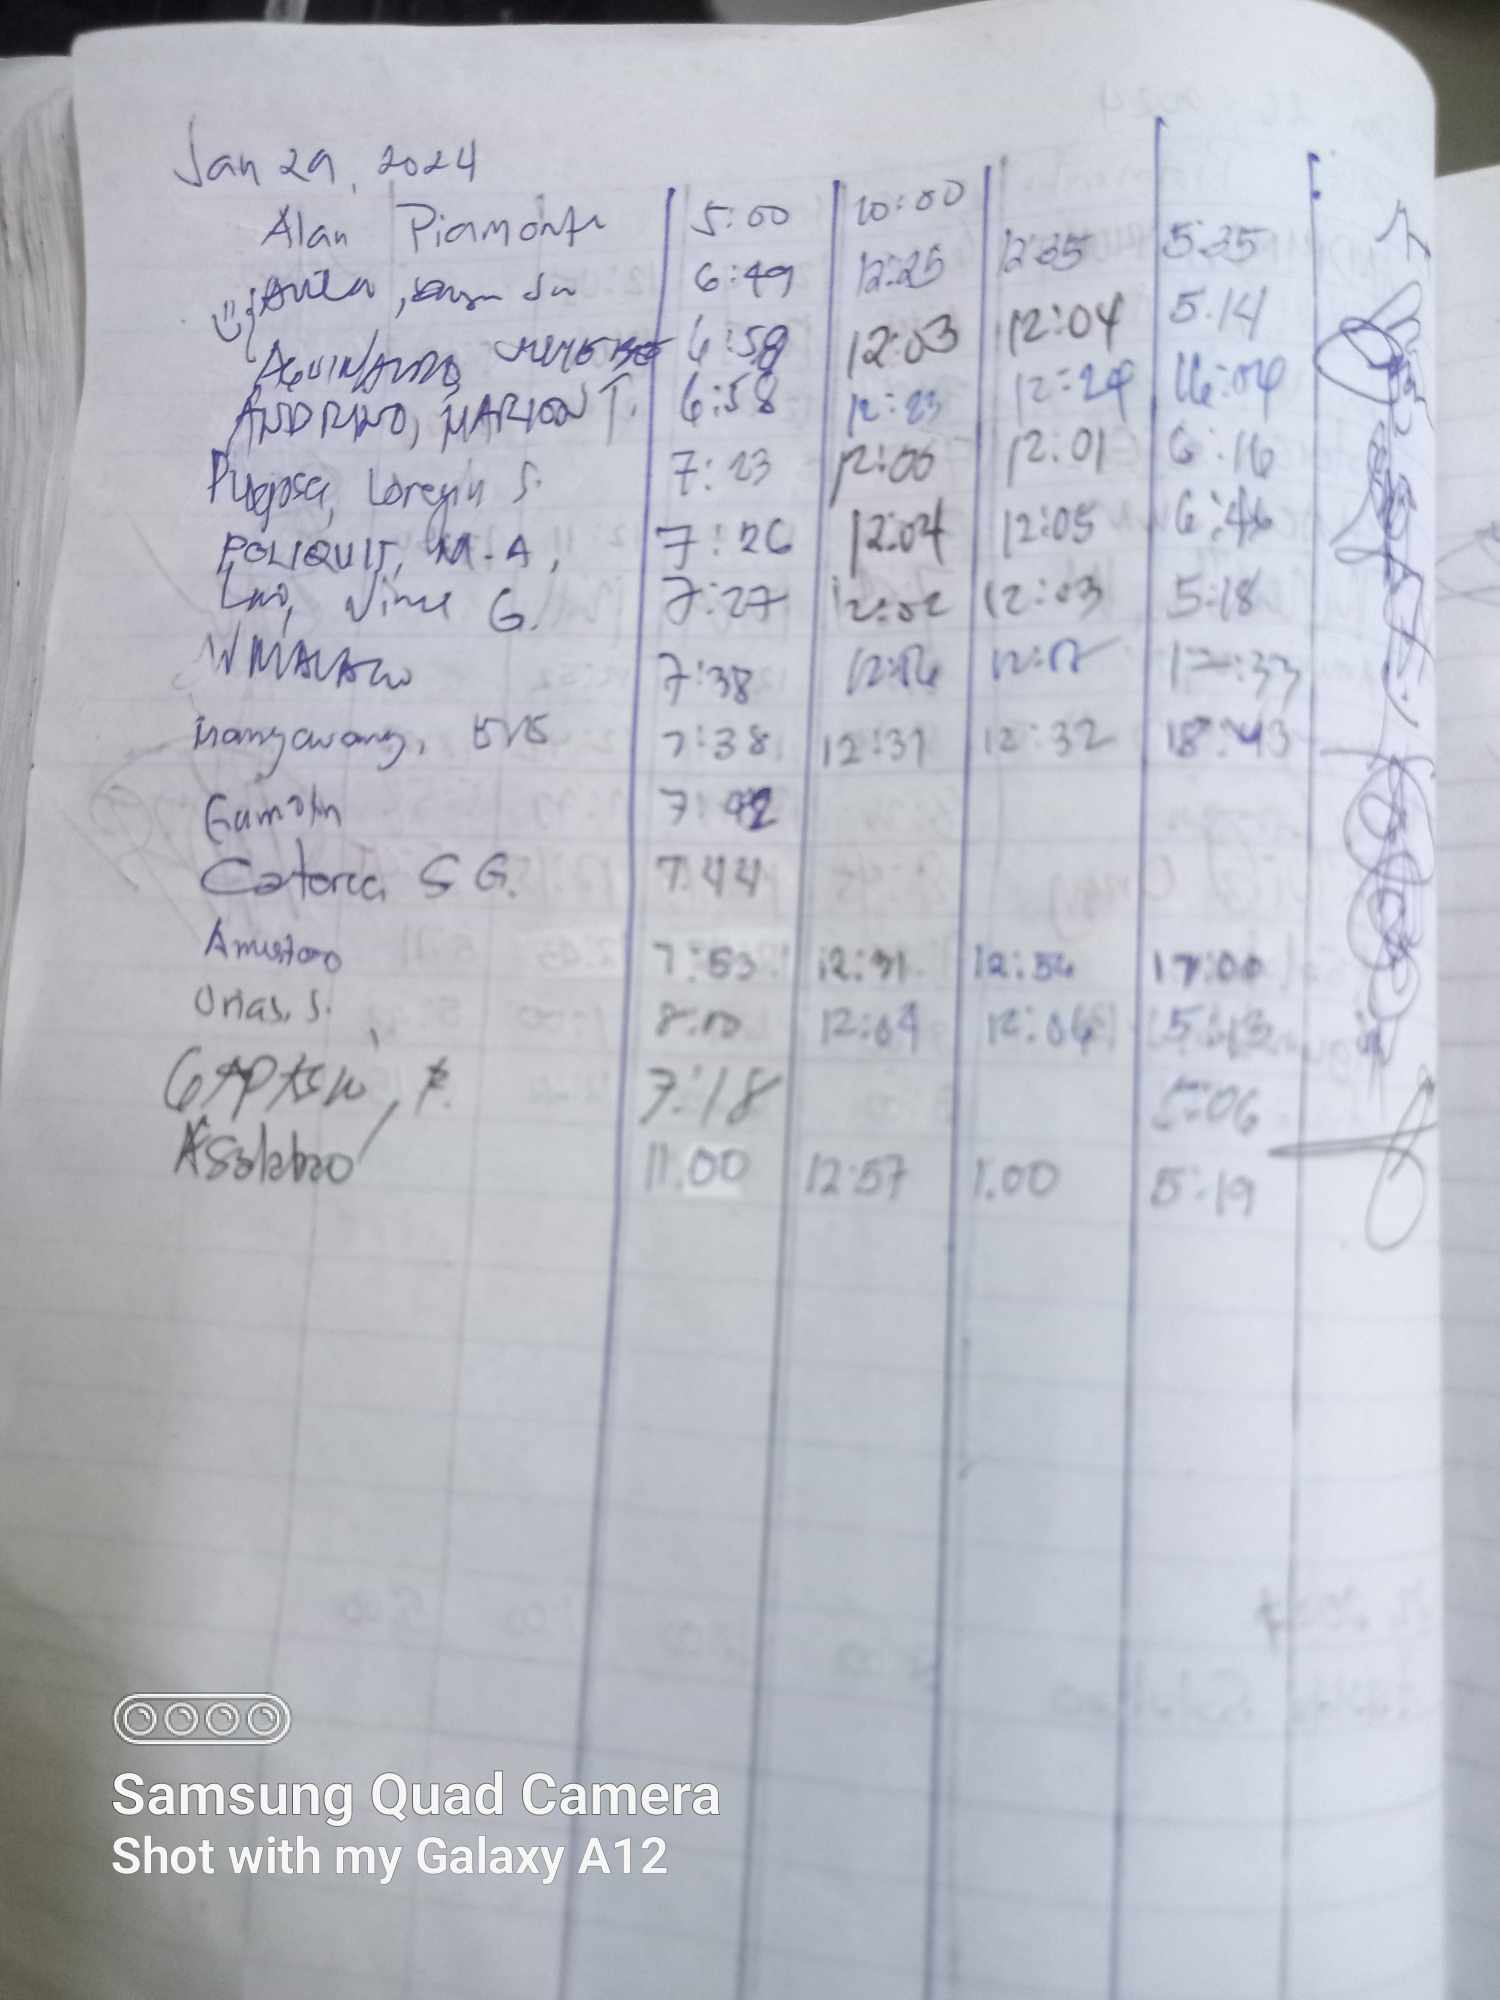 Jan 29, 2024
Alan Piamonte 5:00 10:00
Avila, 6:49 12:25 12:35 5:35
AGUINALDO, 6:58 12:03 12:04 5:14
ANDRINO, MARION T. 6:58 12:23 12:24 16:04
Pugosa, Loregin S. 7:23 12:00 12:01 6:16
POLIQUIT, M.A, 7:26 12:04 12:05 6:46
Lao, Vince G. 7:27 12:02 12:03 5:18
7:38 12:16 12:17 17:33
7:38 12:31 12:32 18:43
Gumotin 7:42
Catorce, S G. 7:44
7:53 12:31 12:32 17:00
Orias, S. 8:00 12:04 12:06 5:13
7:18 5:06
Asolabao 11:00 12:57 1:00 5:19
Samsung Quad Camera
Shot with my Galaxy A12